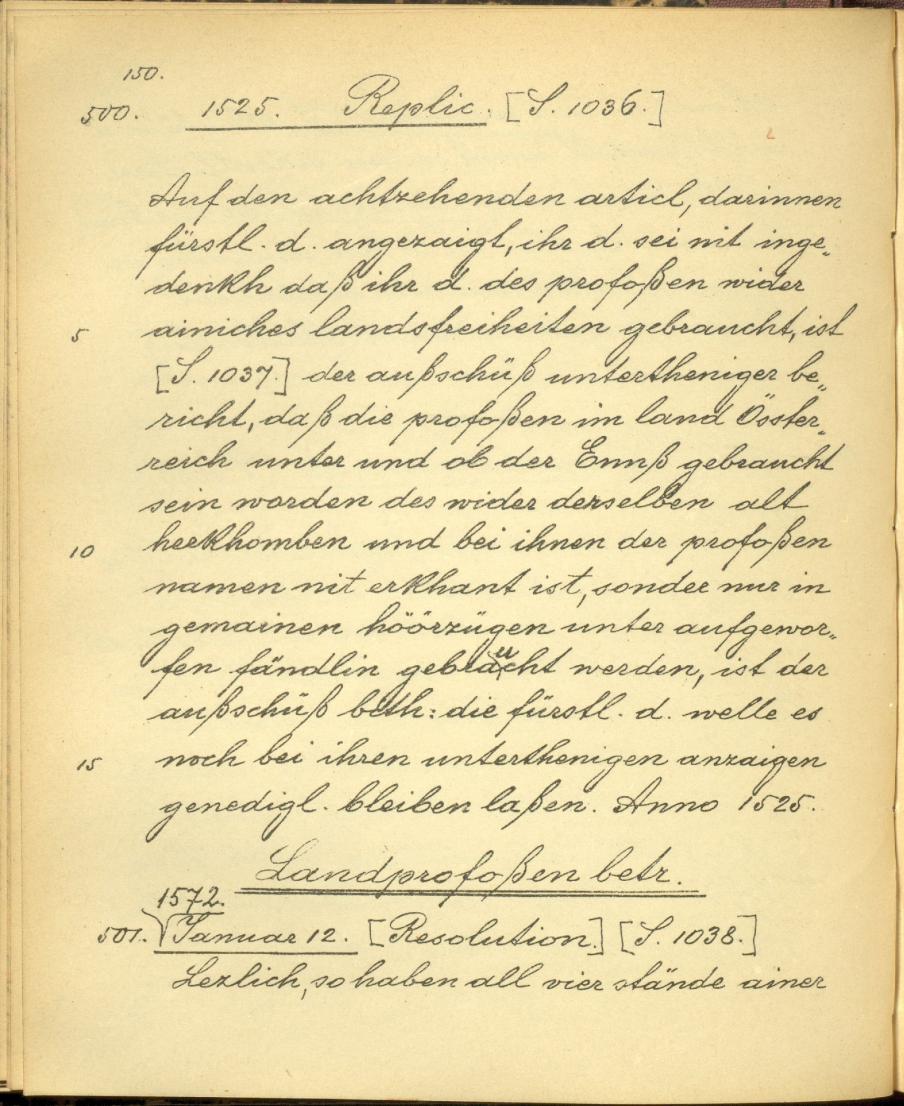 150.
500. 1525. Replic. [S. 1036.]
Auf den achtzehenden articl, darinnen
fürstl. d. angezaigt, ihr d. sei nit inge„
denkh daß ihr d. des profoßen wider
5 ainiches landsfreiheiten gebraucht, ist
[S. 1037.] der außschüß untertheniger be„
richt, daß die profoßen im landÖsster„
reich unter und ob der Ennß gebraucht
sein worden des wider derselben alt
10 herkhomben und bei ihnen der profoßen
namen nit erkhant ist, sonder nur in
gemainen höörzügen unter aufgewor„
fen fändlin gebraucht werden, ist der
außschüß beth: die fürstl. d. welle es
15 noch bei ihren unterthenigen anzaigen
genedigl. bleiben laßen. Anno 1525.
Landprofoßen betr.
1572.
501. Januar 12. [Resolution.] [S. 1038.]
Lezlich, so haben all vier stände ainer